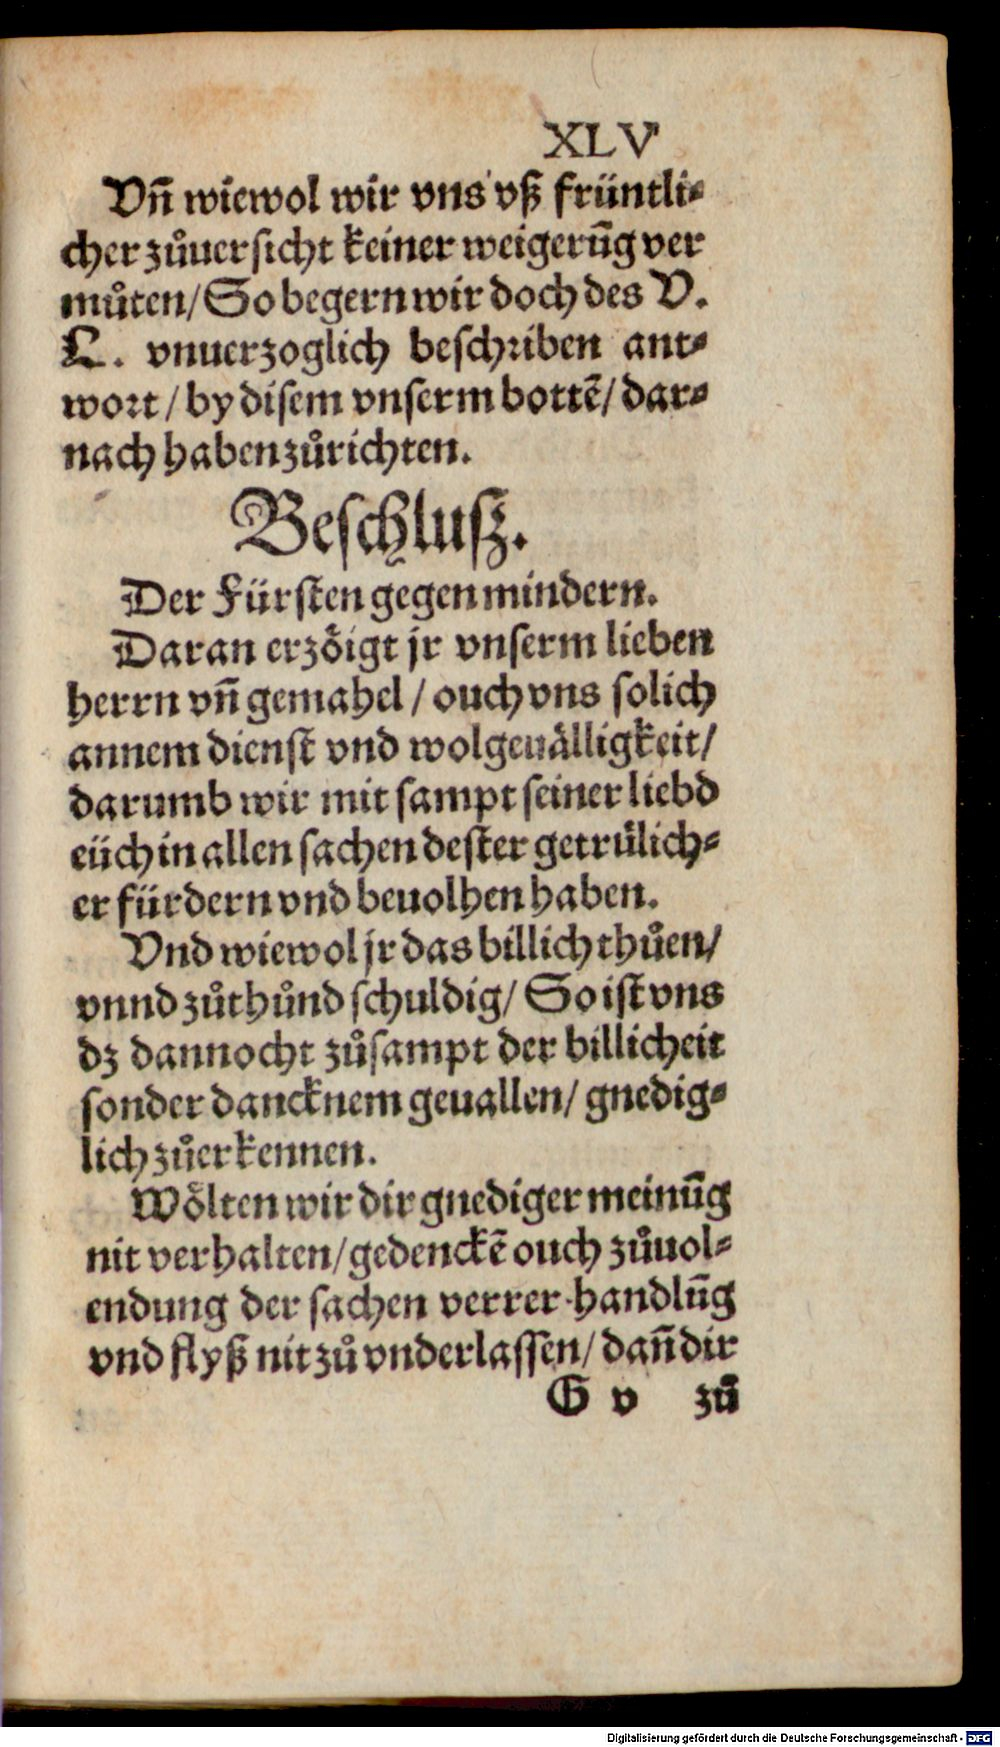 XLV
Vn̄ wiewol wir vns vß früntli⸗
cher zůuersicht keiner weigerūg ver
můten/ So begern wir doch des V.
L. vnuerzoglich beschriben ant⸗
wort / by disem vnserm bottē/ dar⸗
nach haben zůrichten.
Beschlusz.
Der Fürsten gegen mindern.
Daran erzöigt jr vnserm lieben
herrn vn̄ gemahel / ouch vns solich
annem dienst vnd wolgeuälligkeit/
darumb wir mit sampt seiner liebd
eüch in allen sachen dester getrülich⸗
er fürdern vnd beuolhen haben.
Vnd wiewol jr das billich thůen/
vnnd zůthůnd schuldig/ So ist vns
dz dannocht zůsampt der billicheit
sonder dancknem geuallen/ gnedig⸗
lich zůerkennen.
Wölten wir dir gnediger meinūg
nit verhalten/ gedenckē ouch zůuol⸗
endung der sachen verrer handlūg
vnd flyß nit zů vnderlassen/ dan̄ dir
G v zů
Digitalisierung gefördert durch die Deutsche Forschungsgemeinschaft - DFG